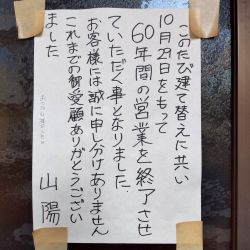 このたび建て替えに共い
10月29日をもって
60年間の営業を終了させ
ていただく事となりました.
お客様には誠に申し分けありません
これまでの御愛顧ありがとうござい
ました
山陽